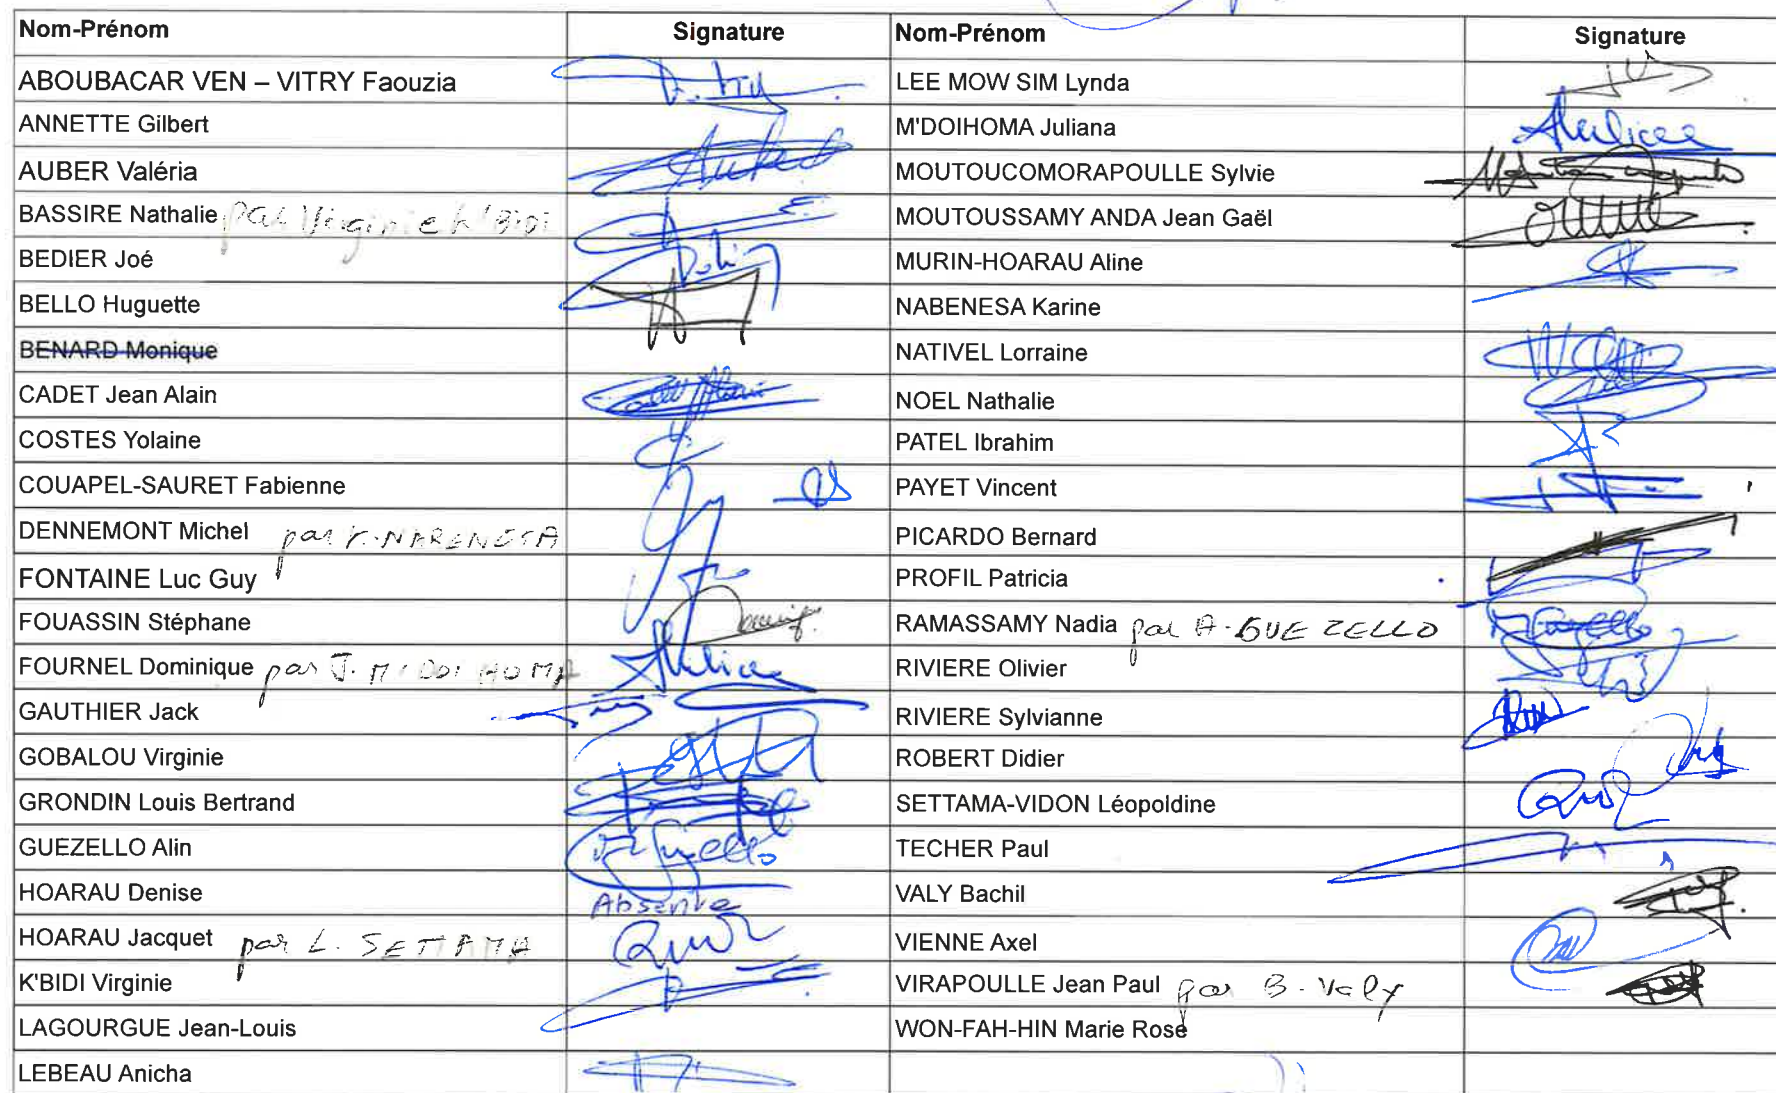 Nom-Prénom Signature Nom-Prénom Signature
ABOUBACAR VEN – VITRY Faouzia LEE MOW SIM Lynda
ANNETTE Gilbert M'DOIHOMA Juliana
AUBER Valéria MOUTOUCOMORAPOULLE Sylvie
BASSIRE Nathalie par Virginie K'Bidi MOUTOUSSAMY ANDA Jean Gaël
BEDIER Joé MURIN-HOARAU Aline
BELLO Huguette NABENESA Karine
BENARD Monique NATIVEL Lorraine
CADET Jean Alain NOEL Nathalie
COSTES Yolaine PATEL Ibrahim
COUAPEL-SAURET Fabienne PAYET Vincent
DENNEMONT Michel par K. NABENESA PICARDO Bernard
FONTAINE Luc Guy PROFIL Patricia
FOUASSIN Stéphane RAMASSAMY Nadia par A. GUEZELLO
FOURNEL Dominique par J. M'DOIHOMA RIVIERE Olivier
GAUTHIER Jack RIVIERE Sylvianne
GOBALOU Virginie ROBERT Didier
GRONDIN Louis Bertrand SETTAMA-VIDON Léopoldine
GUEZELLO Alin TECHER Paul
HOARAU Denise Absente VALY Bachil
HOARAU Jacquet par L. SETTAMA VIENNE Axel
K'BIDI Virginie VIRAPOULLE Jean Paul par B. Valy
LAGOURGUE Jean-Louis WON-FAH-HIN Marie Rose
LEBEAU Anicha